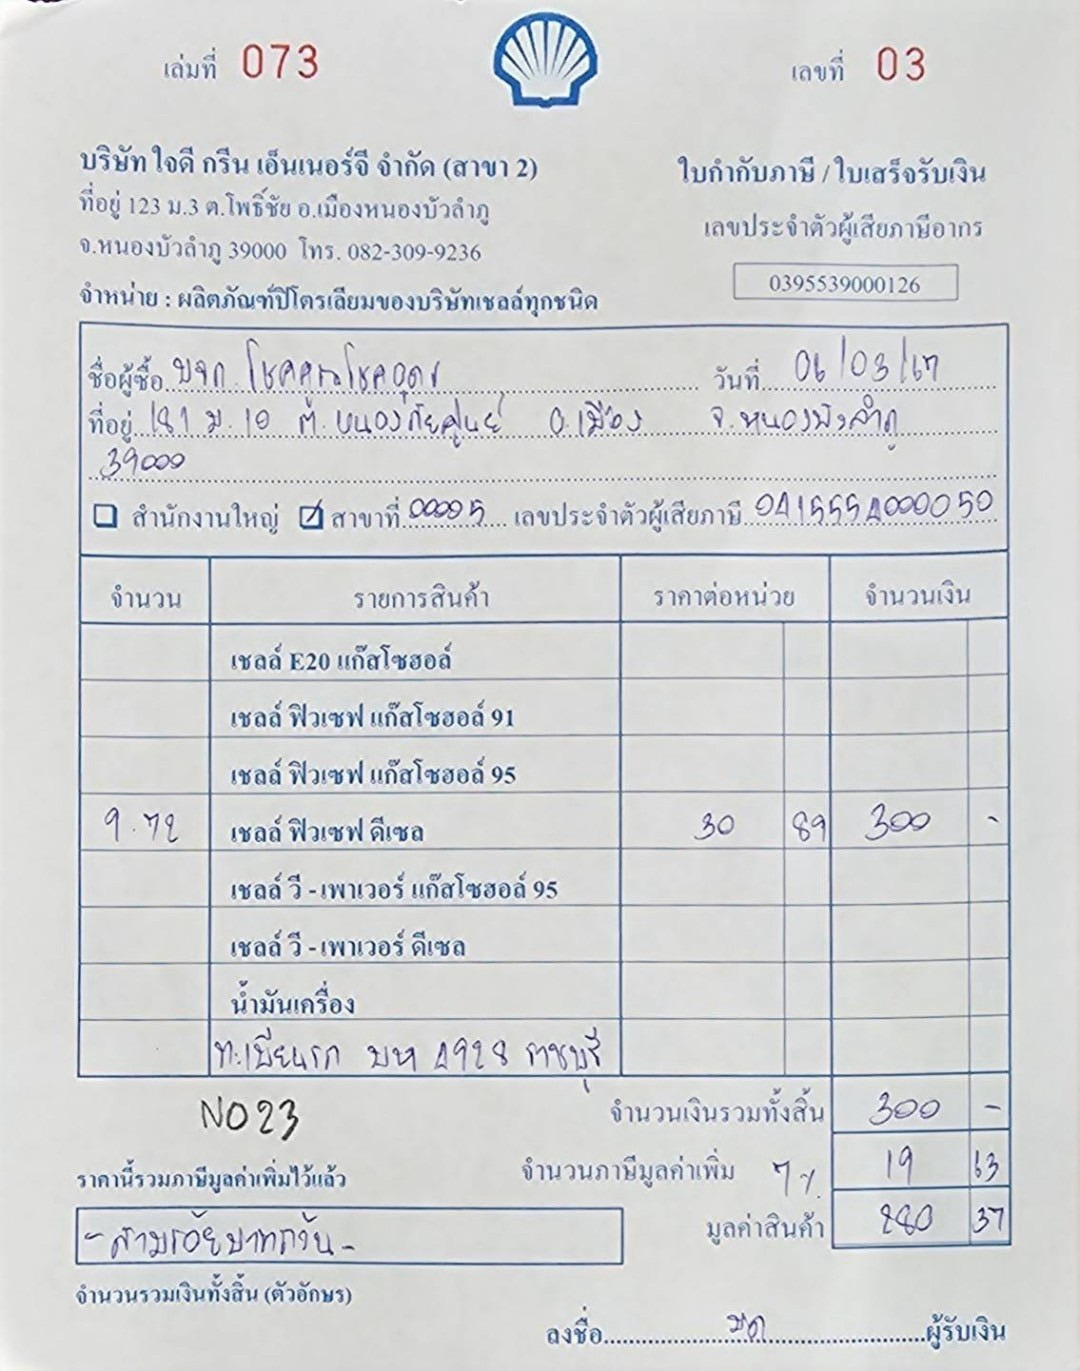 เล่มที่ 073
เลขที่ 03
บริษัท ใจดี กรีน เอ็นเนอร์จี จำกัด (สาขา 2)
ที่อยู่ 123 ม.3 ต.โพธิ์ชัย อ.เมืองหนองบัวลำภู
จ.หนองบัวลำภู 39000 โทร. 082-309-9236
จำหน่าย : ผลิตภัณฑ์ปิโตรเลียมของบริษัทเชลล์ทุกชนิด
ใบกำกับภาษี / ใบเสร็จรับเงิน
เลขประจำตัวผู้เสียภาษีอากร
0395539000126
ชื่อผู้ซื้อ บจก. วันที่ 06/03/67
ที่อยู่ 181 ม.10 ต.หนองภัยศูนย์ อ.เมือง จ.หนองบัวลำภู
39000
สำนักงานใหญ่ สาขาที่ 00005 เลขประจำตัวผู้เสียภาษี 0415554000050
จำนวน รายการสินค้า ราคาต่อหน่วย จำนวนเงิน
เชลล์ E20 แก๊สโซฮอล์
เชลล์ ฟิวเซฟ แก๊สโซฮอล์ 91
เชลล์ ฟิวเซฟ แก๊สโซฮอล์ 95
9.72 เชลล์ ฟิวเซฟ ดีเซล 30 89 300 -
เชลล์ วี - เพาเวอร์ แก๊สโซฮอล์ 95
เชลล์ วี - เพาเวอร์ ดีเซล
น้ำมันเครื่อง
ทะเบียนรถ มห 4928 ราชบุรี
NO23
จำนวนเงินรวมทั้งสิ้น 300 -
ราคานี้รวมภาษีมูลค่าเพิ่มไว้แล้ว
จำนวนภาษีมูลค่าเพิ่ม 7% 19 63
มูลค่าสินค้า 280 37
- สามร้อยบาทถ้วน -
จำนวนรวมเงินทั้งสิ้น (ตัวอักษร)
ลงชื่อ ผู้รับเงิน